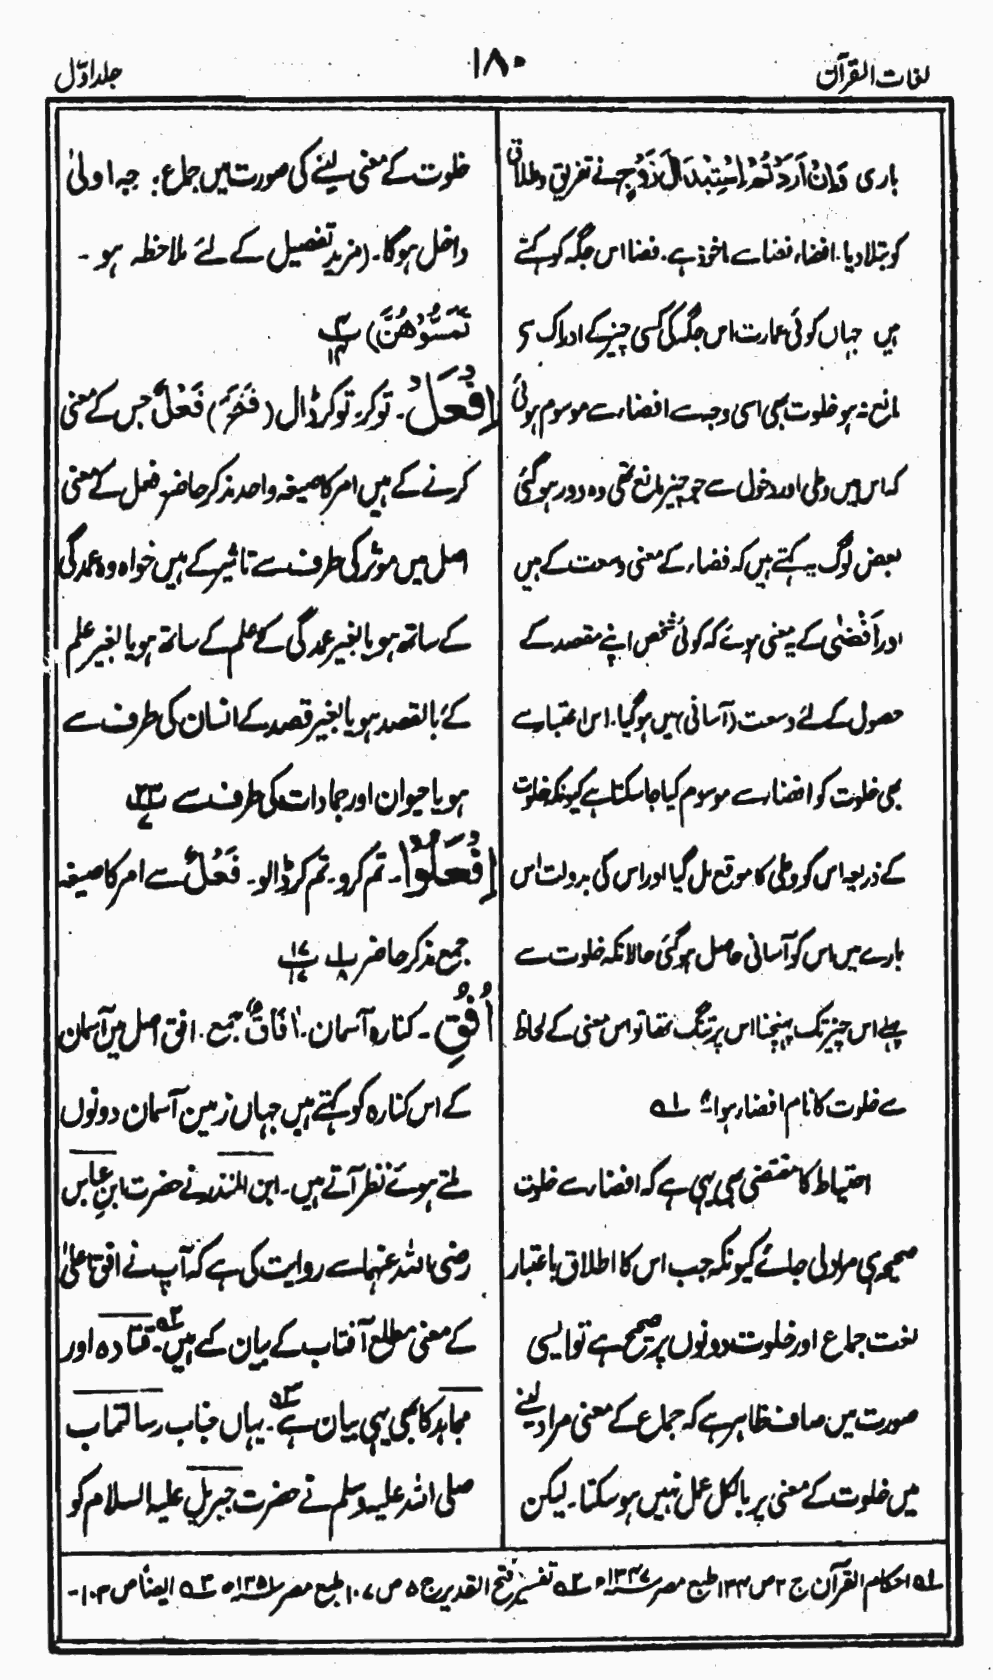 لغات القرآن
۱۸۰
جلد اوّل
باری وَاِنْ اَرَدْتُّمُ اسْتِبْدَالَ زَوْجٍ نے تفریق وطلاق
کو بتلا دیا۔ افضاء فضا سے ماخوذ ہے۔ فضا اس جگہ کو کہتے
ہیں جہاں کوئی عمارت اس جگہ کی کسی چیز کے ادراک سے
مانع نہ ہو خلوت بھی اسی وجہ سے افضاء سے موسوم ہوئی
کہ اس میں وطی اور دخول سے جو چیز مانع تھی وہ دور ہوگئی
بعض لوگ یہ کہتے ہیں کہ فضاء کے معنی وسعت کے ہیں
اور اَفْضٰی کے یہ معنی ہوئے کہ کوئی شخص اپنے مقصد کے
حصول کے لئے وسعت (آسانی) میں ہوگیا۔ اس اعتبار سے
بھی خلوت کو افضاء سے موسوم کیا جا سکتا ہے کیونکہ خلوت
کے ذریعہ اس کو وطی کا موقع مل گیا اور اس کی بدولت اس
بارے میں اس کو آسانی حاصل ہوگئی حالانکہ خلوت سے
پہلے اس چیز تک پہنچنا اس پر تنگ تھا تو اس معنی کے لحاظ
سے خلوت کا نام افضاء ہوا ۱ـہ
احتیاط کا مقتضی بھی یہی ہے کہ افضاء سے خلوت
صحیحہ ہی مراد لی جائے کیونکہ جب اس کا اطلاق باعتبار
لغت جماع اور خلوت دونوں پر صحیح ہے تو ایسی
صورت میں صاف ظاہر ہے کہ جماع کے معنی مراد لینے
میں خلوت کے معنی پر بالکل عمل نہیں ہو سکتا۔ لیکن
خلوت کے معنی لینے کی صورت میں جماع بدرجہ اولیٰ
داخل ہوگا۔ (مزید تفصیل کے لئے ملاحظہ ہو۔
تَمَسُّوْهُنَّ) ۴/۱۴
اِفْعَلْ۔ تو کر، تو کر ڈال (فَتَحَ) فَعْلٌ جس کے معنی
کرنے کے ہیں امر کا صیغہ واحد مذکر حاضر، فعل کے معنی
اصل میں موثر کی طرف سے تاثیر کے ہیں خواہ وہ عمدگی
کے ساتھ ہو یا بغیر عمدگی کے علم کے ساتھ ہو یا بغیر علم
کے بالقصد ہو یا بغیر قصد کے انسان کی طرف سے
ہو یا حیوان اور جمادات کی طرف سے ۲۳/۷
اِفْعَلُوْا۔ تم کرو۔ تم کر ڈالو۔ فَعْلٌ سے امر کا صیغہ
جمع مذکر حاضر ۱/۸ ۱۷/۱۷
اُفُقِ۔ کنارہ آسمان۔ اٰفَاقٌ جمع۔ افق اصل میں آسمان
کے اس کنارہ کو کہتے ہیں جہاں زمین آسمان دونوں
ملتے ہوئے نظر آتے ہیں۔ ابن المنذر نے حضرت ابن عباس
رضی اللہ عنہما سے روایت کی ہے کہ آپ نے افق اعلیٰ
کے معنی مطلع آفتاب کے بیان کئے ہیں ۲ـہ۔ قتادہ اور
مجاہد کا بھی یہی بیان ہے ۳ـہ۔ یہاں جناب رسالتماب
صلی اللہ علیہ وسلم نے حضرت جبریل علیہ السلام کو
۱ـہ احکام القرآن ج ۲ ص ۱۳۳ طبع مصر ۱۳۴۷ھ ۲ـہ تفسیر فتح القدیر ج ۵ ص ۱۰۷ طبع مصر ۱۳۵۱ھ ۳ـہ ایضاً ص ۱۰۳۔